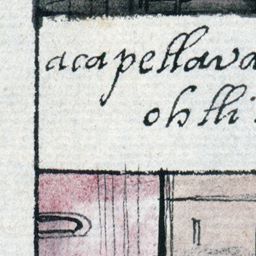 acapetlava
ohtli